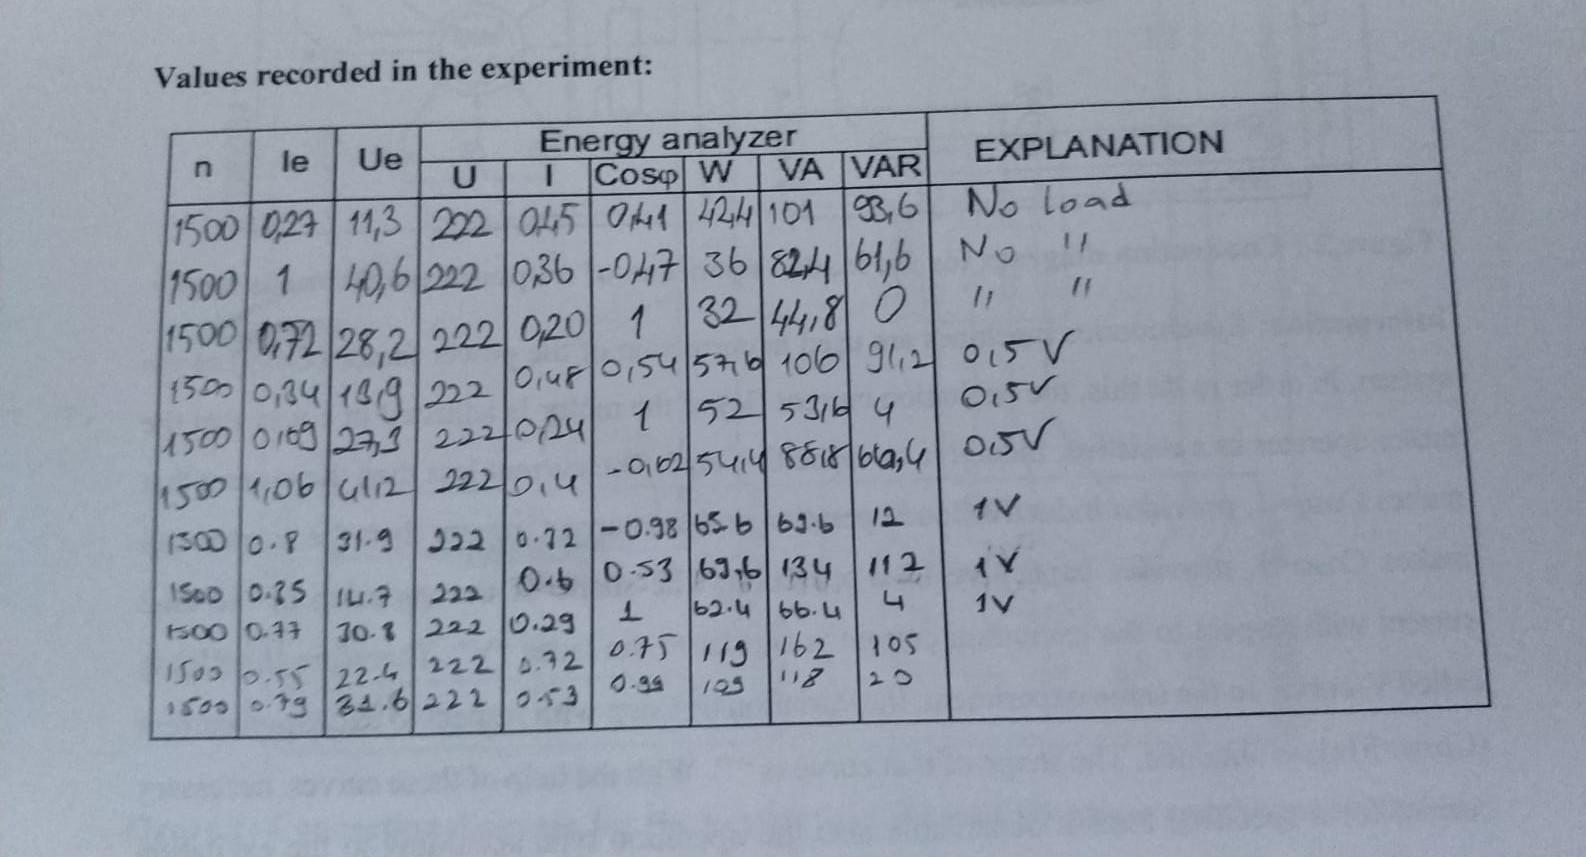 Values recorded in the experiment:
n Ie Ue Energy analyzer EXPLANATION
U I Cosφ W VA VAR
1500 0,27 11,3 222 0,45 0,41 42,4 101 93,6 No load
1500 1 40,6 222 0,36 -0,47 36 82,4 61,6 No "
1500 0,72 28,2 222 0,20 1 32 44,8 0 " "
1500 0,34 13,9 222 0,48 0,54 57,6 106 91,2 0,5V
1500 0,69 27,3 222 0,24 1 52 53,6 4 0,5V
1500 1,06 41,2 222 0,4 -0,62 54,4 88,8 0,5V
1500 0.8 31.9 222 -0.98 65.6 69.6 12 1V
1500 0.35 14.7 222 0.6 0.53 69,6 134 112 1V
1500 0.77 30.8 222 0.29 1 62.4 66.4 4 1V
1500 0.55 22.4 222 0.72 0.75 119 162 105
1500 0.79 31.6 222 0.53 0.99 109 118 20